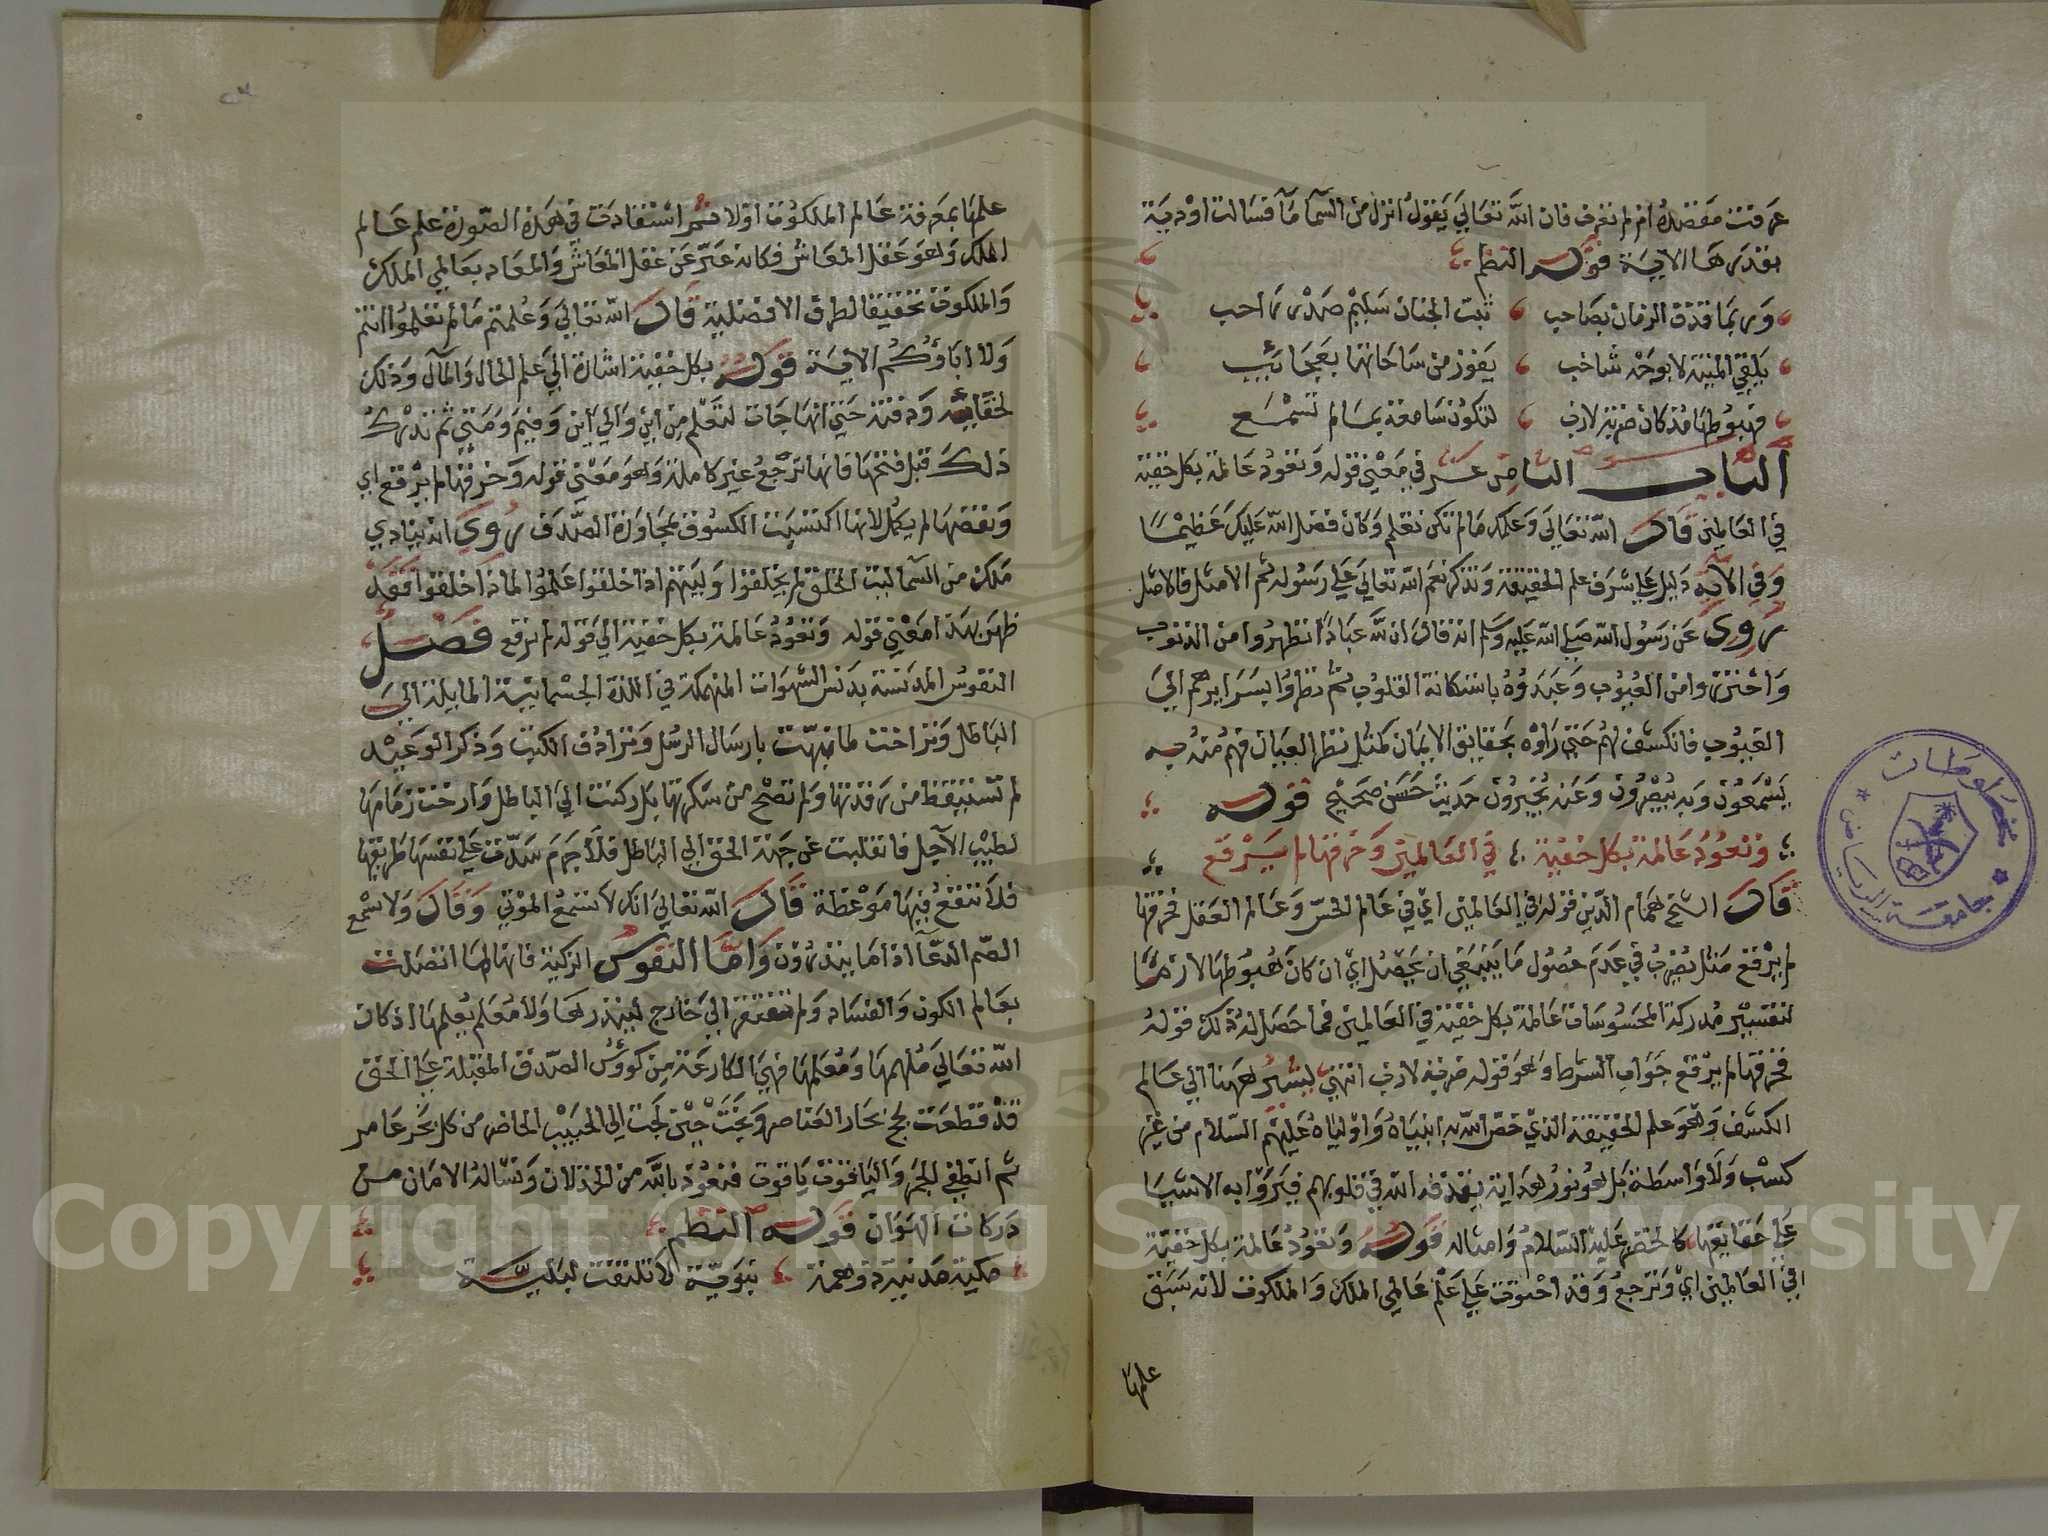 عرفت مقصده ام لم تعرف فان الله تعالي يقول انزل من السمآ مآ فسالت اودية
بقدرها الاية قوله النظم
وربما قذف الزمان بصاحب ثبت الجنان سليم صدر راحب
يلقي المنية لا بوجه شاحب يفوز من ساحاتها بعجائب
فهبوطها مذ كان ضربة لازب لتكون سامعة بما لم تسمع
الباب الثامن عشر في معني قوله وتعود عالمة بكل خفية
في العالمين قال الله تعالي وعلمك مالم تكن تعلم وكان فضل الله عليك عظيما
وفي الاية دليل علي شرف علم الحقيقة وتذكر نعم الله تعالي علي رسوله ثم الامثل فالامثل
روي عن رسول الله صلي الله عليه وسلم انه قال ان لله عبادا تطهروا من الذنوب
واحترزوا من العيوب وعبدوه باستكانة القلوب ثم نظروا بسرايرهم الي
الغيوب فانكشف لهم حتي راوه بحقايق الايمان كمثل نظر العيان فهم منه به
يسمعون وبه يبصرون وعنه يخبرون حديث حسن صحيح قوله
وتعود عالمة بكل خفية في العالمين وخرقها لم يرقع
قال الشيخ همام الدين قوله في العالمين اي في عالم الحس وعالم العقل فخرقها
لم يرقع مثل يضرب في عدم حصول ما ينبغي ان يحصل اي ان كان هبوطها لازما
لتصير مدركة المحسوسات عالمة بكل خفية في العالمين فما حصل له ذلك قوله
فخرقها لم يرقع جواب الشرط وهو قوله ضربة لازب انتهي يشير ههنا الي عالم
الكشف وهو علم الحقيقة الذي خص الله به انبياه واولياه عليهم السلام من غير
كسب ولا واسطة بل هو نور هداية يقذفه الله في قلوبهم فيروا به الاشيا
علي حقايقها كالخضر عليه السلام وامثاله قوله وتعود عالمة بكل خفية
في العالمين اي وترجع وقد احتوت علي علم عالمي الملك والملكوت لانه سبق
علمها
علمها بمعرفة عالم الملكوت اولا ثم استفادت في هذه الصورة علم عالم
الملك وهو عقل المعاش فكانه عبر عن عقل المعاش والمعاد بعالمي الملك
والملكوت تحقيقا لطرق الافضلية قال الله تعالي وعلمتم مالم تعلموا انتم
ولا اباؤكم الاية قوله بكل خفية اشارة الي علم الحال والمآل وذلك
لخفايه ودقته حتي انها جات لتعلم من اين والي اين وفيم ومتي ثم تدرك
ذلك قبل فتحها فانها ترجع غير كاملة وهو معني قوله وخرقها لم يرقع اي
ونقصها لم يكمل لانها اكتسبت الكسوف لمجاورة الصدف روي انه ينادي
ملك من السما ليت الخلق لم يخلقوا وليتهم اذا خلقوا علموا لماذا خلقوا فقد
ظهر بهذا معني قوله وتعود عالمة بكل خفية الي قوله لم يرقع فصل
النفوس المدنسة بدنس الشهوات المنهمكة في اللذة الجسمانية المايلة الي
الباطل وتراخت لما نبهت بارسال الرسل وترادف الكتب وذكر الوعيد
لم تستيقظ من رقدتها ولم تصح من سكرتها بل ركنت الي الباطل وارخت زمامها
لطيب الآجل فانقلبت عن جهة الحق الي الباطل فلا جرم سدت علي نفسها طريقها
فلا تنفع فيها موعظة قال الله تعالي انك لا تسمع الموتي وقال ولا تسمع
الصم الدعآ اذا ما ينذرون واما النفوس الزكية فانها لما اتصلت
بعالم الكون والفساد ولم تفتقر الي خارج لينذرها ولا معلم يعلمها اذ كان
الله تعالي ملهمها ومعلمها فهي الكارعة من كووس الصدق المقبلة علي الحق
قد قطعت لجج بحار العناصر ونجت حتي لجت الي الحبيب الحاضر من كل بحر عامر
ثم انطفي الجمر والياقوت ياقوت فنعوذ بالله من الخذلان ونساله الامان من
دركات الهوان قوله النظم
مكية مدنية وهمة نبوية لا تلتفت لبلية
مخطوطات
جامعة الرياض
Copyright © King Saud University
1957